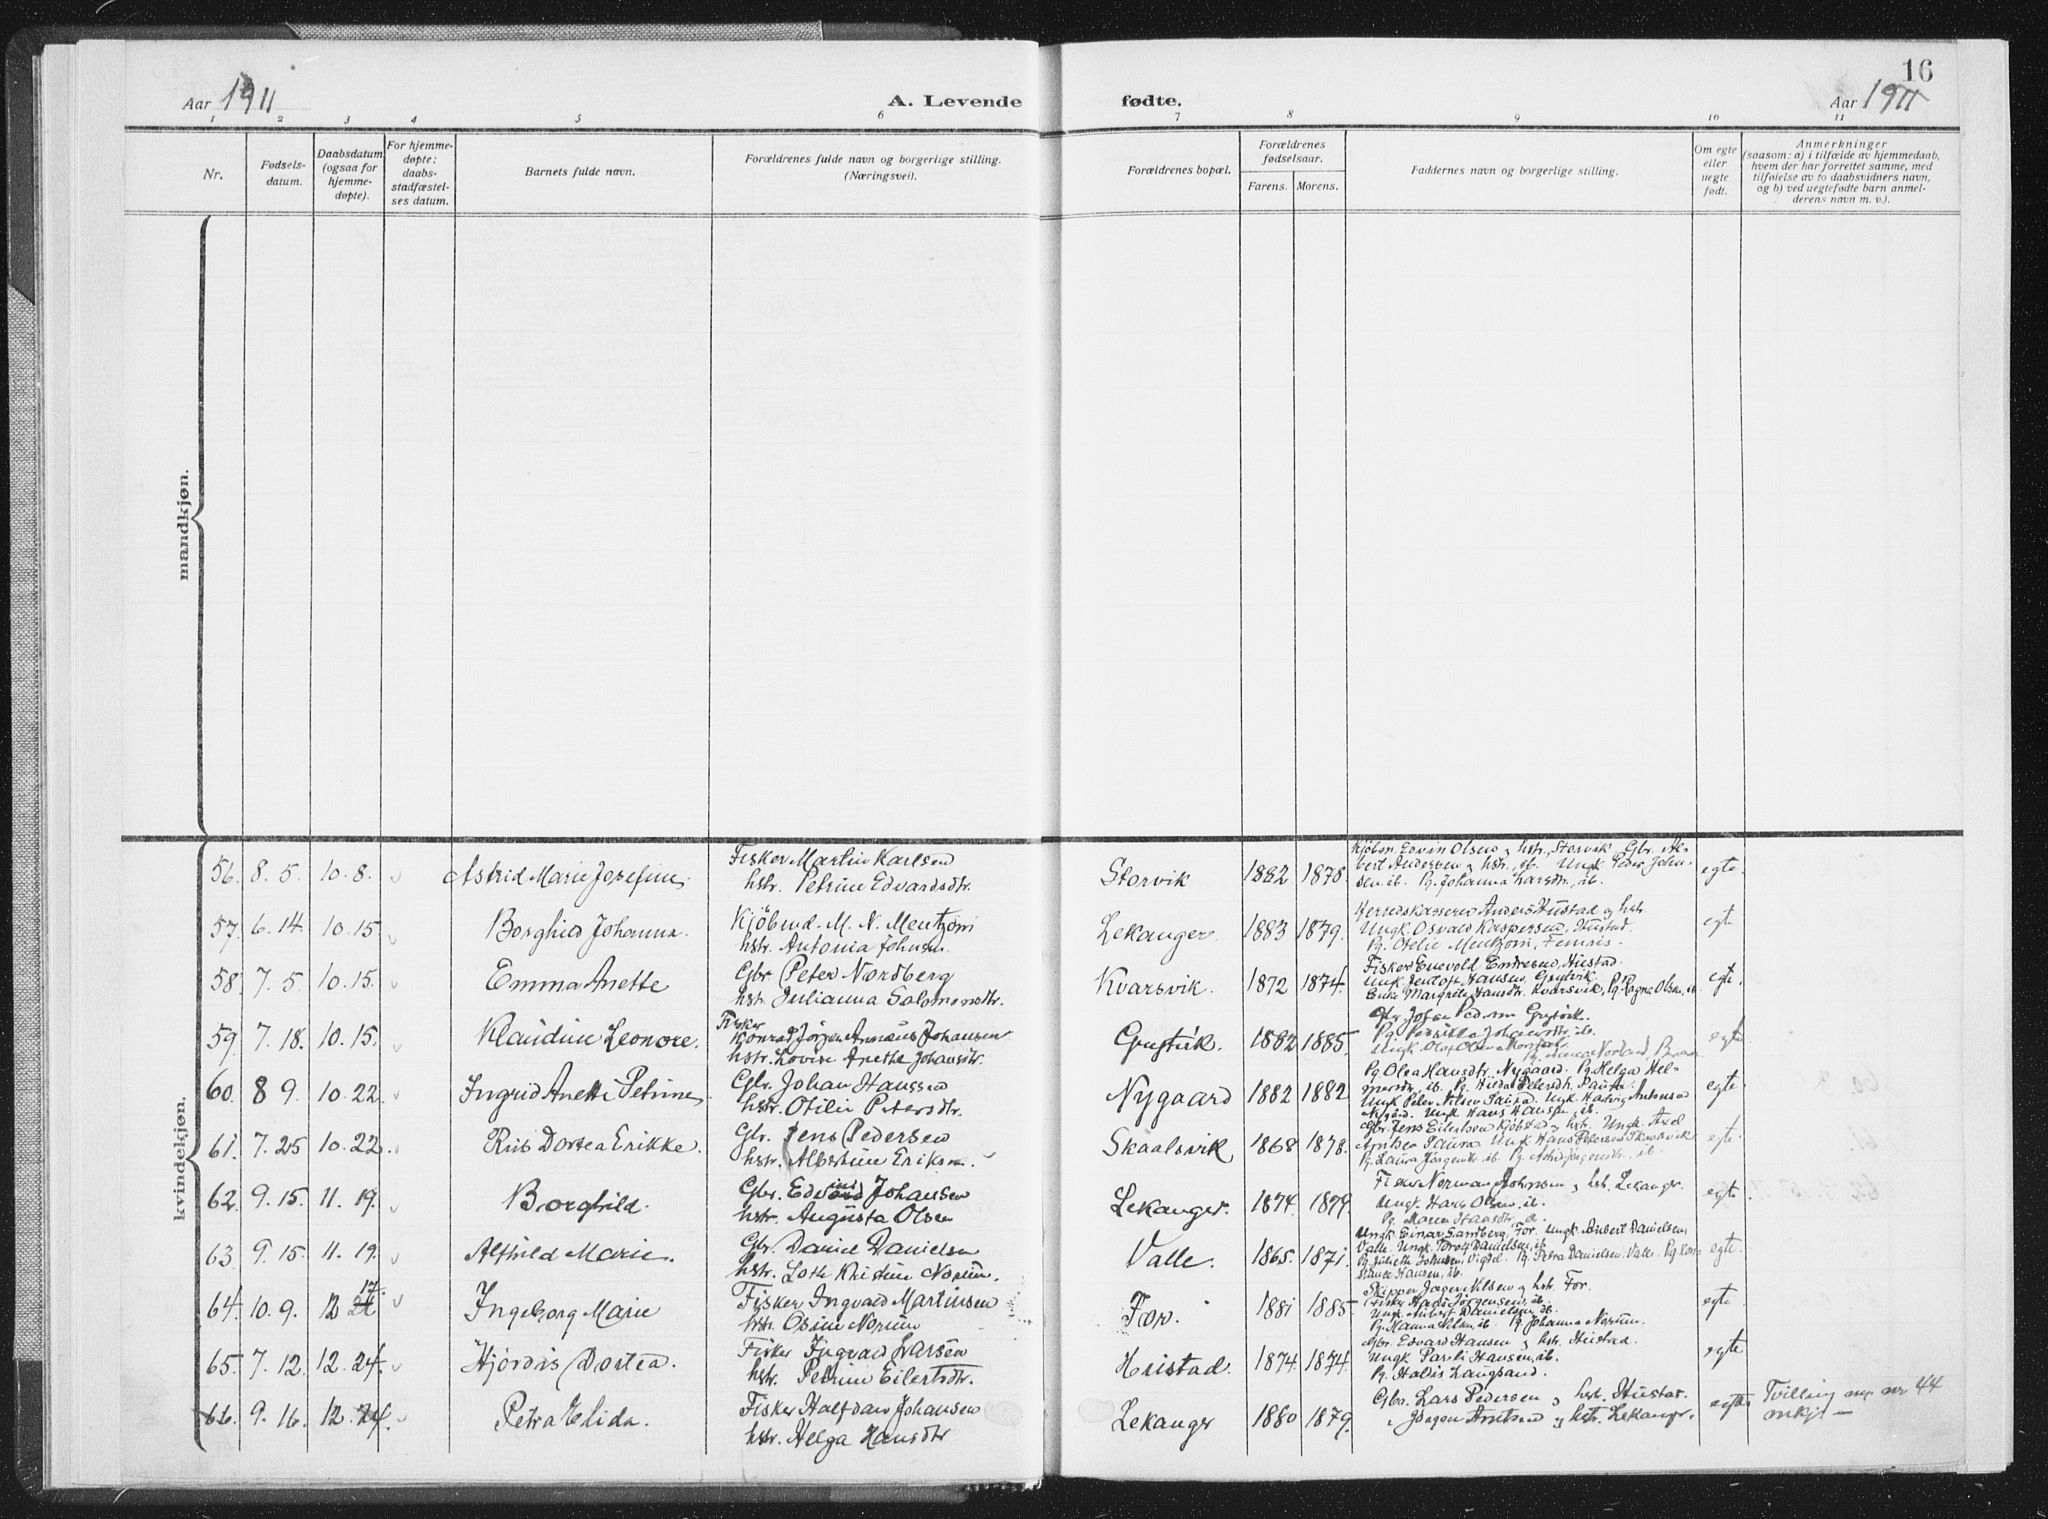 16
Aar 1911
A. Levende
fødte.
Aar 1911
1 2 3 4 5 6 7 8 9 10 11
Nr.
Fødsels-
datum.
Daabsdatum
(ogsaa for
hjemme-
døpte).
For hjemme-
døpte:
daabs-
stadfæstel-
ses datum.
Barnets fulde navn.
Forældrenes fulde navn og borgerlige stilling.
(Næringsvei).
Forældrenes bopæl.
Forældrenes
fødselsaar.
Farens. Morens.
Faddernes navn og borgerlige stilling.
Om egte
eller
uegte
født.
Anmerkninger
(saasom: a) i tilfælde av hjemmedaab,
hvem der har forrettet samme, med
tilføielse av to daabsvidners navn,
og b) ved uegtefødte barn anmel-
derens navn m. v.).
mandkjøn.
kvindekjøn.
56. 8. 5. 10. 8. Astrid Marie Josefine.
Fisker Martin Karlsen
hstr. Petrine Edvardsdtr.
Storvik 1882 1878.
Kjøbm. Edvin Olsen og hstr., Storvik Gbr. Al-
bert Andersen og hstr. ib. Ungk. Peder John-
sen ib. Pg. Johanna Larsdtr., ib.
egte.
57. 6. 14 10. 15. Borghild Johanna.
Kjøbmd. M. N. Mentzoni
hstr. Antonia Johnsen
Lekanger. 1883 1879.
Herredskasserer Anders Hustad og hstr.
Ungk. Osvald Kaspersen, Hustad.
Pg. Otelie Mentzoni, Femris.
egte
58. 7. 5. 10. 15. Emma Anette
Gbr. Peter Nordberg
hstr. Julianna Salomonsdtr.
Kvarsvik. 1872 1874.
Fisker Enevold Endresen, Hustad.
Ungk. Jentoft Hansen Grytvik.
Enke Margrete Hansdtr. Kvarsvik, Pg. Ragna Olsen, ib.
egte.
59. 7. 18. 10. 15. Klaudine Leonore.
Fisker
Konrad Jørgen Annæus Johansen
hstr. Lovise Anethe Johansdtr.
Grytvik. 1882 1885.
Ungk. Olaf Olsen
egte
60. 8 9. 10. 22. Ingrid Anette Petrine
Gbr. Johan Hanssen
hstr. Otilie Petersdtr.
Nygaard 1882 1882
Pg. Olva Hansdtr, Nygaard. Pg. Helga Hel-
mersdtr, ib. Pg. Hilda Petersdtr. Saura.
Ungk Peter Nilsen Saura. Ungk. Hartvig Antonsen
Nygård. Ungk Hans Hansen, ib.
egte
61. 7. 25 10. 22. Riis Dortea Erikke.
Gbr. Jens Pedersen
hstr. Albertine Eriksen.
Skaalsvik 1868 1878.
Gbr. Jens Eilertsen Kjøbstad og hstr. Ungk. Axel
Arntsen Saura Ungk Hans Petersen Skaalsvik
Pg. Laura Jørgensdtr. ib. Pg. Astrid Jørgensdtr, ib.
egte.
62. 9. 15. 11. 19. Borghild.
Gbr. Edvin Johansen
hstr. Augusta Olsen
Lekanger. 1874. 1879.
Fisker Norman Johnsen og hst. Lekangr.
Ungk. Hans Olsen, ib.
Pg. Maren Hansdtr, ib.
egte.
63. 9. 15. 11. 19. Alfhild Marie.
Gbr. Daniel Danielsen
hstr. Lotte Kristine Norum.
Valle. 1865. 1871.
Ungk Einar Sandberg, For. Ungk. Anbert Danielsen,
Valle. Ungk Torolf Danielsen, ib.
Pg. Juliette Johnsen, Vigtil. Pg. Petra Danielsen Valle. Pg. Kon-
stance Hansen, ib.
egte.
17.
64. 10. 9. 12 26 Ingeborg Marie
Fisker Ingvald Martinsen
hstr. Osine Norum
For. 1881 1885.
Skipper Jørgen Nilsen og hstr. For.
Fisker Hans Jørgensen, ib.
Ungk. Anbert Danielsen, ib.
Pg. Hanna Nilsen, ib. Pg. Johanna Norum.
egte.
65. 7. 12. 12. 24. Hjørdis Dortea.
Fisker Ingvald Larsen
hstr. Petrine Eilertsdtr.
Heistad. 1874. 1874.
Gbr. Edvard Hansen og hstr. Heistad.
Ungk Pareli Hansen, ib.
Pg. Haldis Langsand.
egte
66. 9. 16. 12. 24. Petra Elida.
Fisker Halfdan Johansen
hstr. Helga Hansdtr
Lekangr 1880 1879.
Gbr. Lars Pedersen og hstr. Hustad.
" Jørgen Arntsen og hstr. Lekangr.
egte.
Tvilling m. nr 44
mkj. —